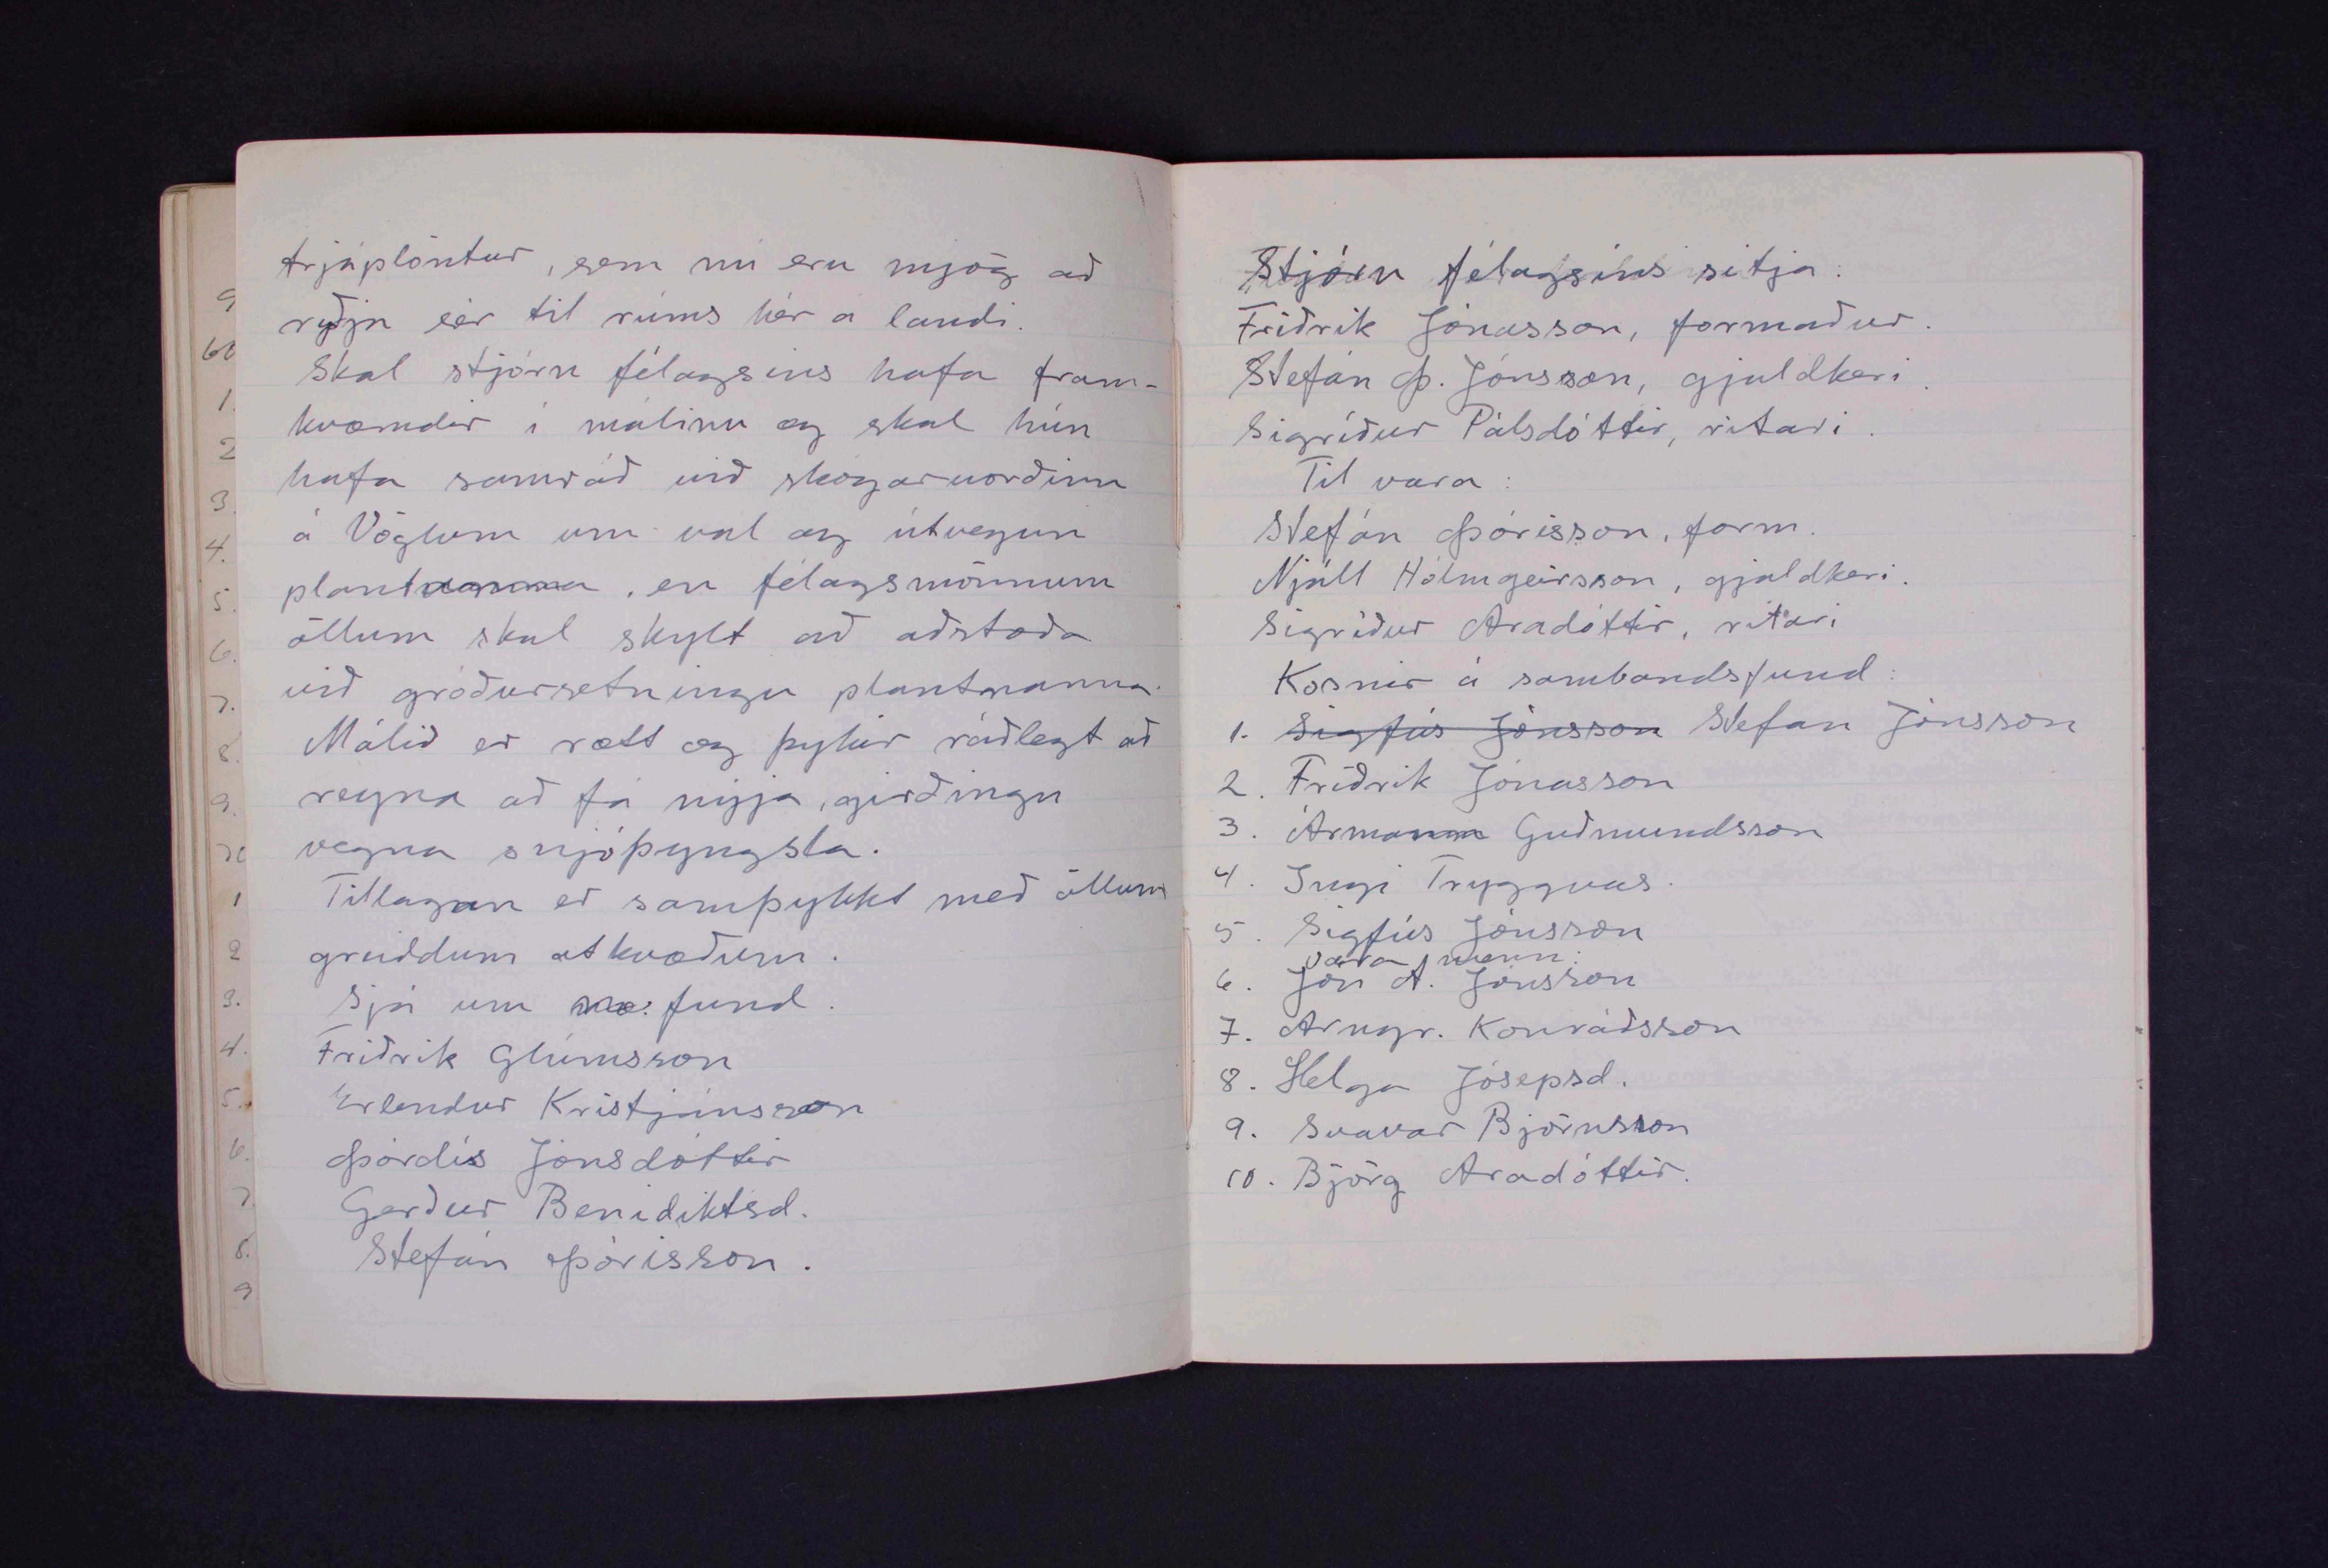 trjáplöntur, sem nú eru mjög að
ryðja sér til rúms hér á landi.
Skal stjórn félagsins hafa fram-
kvæmdir í málinu og skal hún
hafa samráð við skógarvörðinn
á Vöglum um val og útvegun
plantnanna, en félagsmönnum
öllum skal skylt að aðstoða
við gróðursetningu plantnanna.
Málið er rætt og þykir ráðlegt að
reyna að fá nýja girðingu
vegna snjóþyngsla.
Tillagan er samþykkt með öllum
greiddum atkvæðum.
Sjá um næ. fund.
Friðrik Glúmsson
Erlendur Kristjánsson
Þórdís Jónsdóttir
Gerður Benidiktsd.
Stefán Þórisson.
9
60
1.
2
3.
4.
5.
6.
7.
8.
9.
70
1
2
3.
4.
5.
6.
7.
8.
9
Stjórn félagsins sitja:
Friðrik Jónasson, formaður.
Stefán Þ. Jónsson, gjaldkeri.
Sigríður Pálsdóttir, ritari.
Til vara:
Stefán Þórisson, form.
Njáll Hólmgeirsson, gjaldkeri.
Sigríður Aradóttir, ritari
Kosnir á sambandsfund:
1. Sigfús Jónsson Stefan Jónsson
2. Friðrik Jónasson
3. Ármann Guðmundsson
4. Ingi Tryggvas.
5. Sigfús Jónsson
vara menn:
6. Jón A. Jónsson
7. Arngr. Konráðsson
8. Helga Jósepsd.
9. Svavar Björnsson
10. Björg Aradóttir.